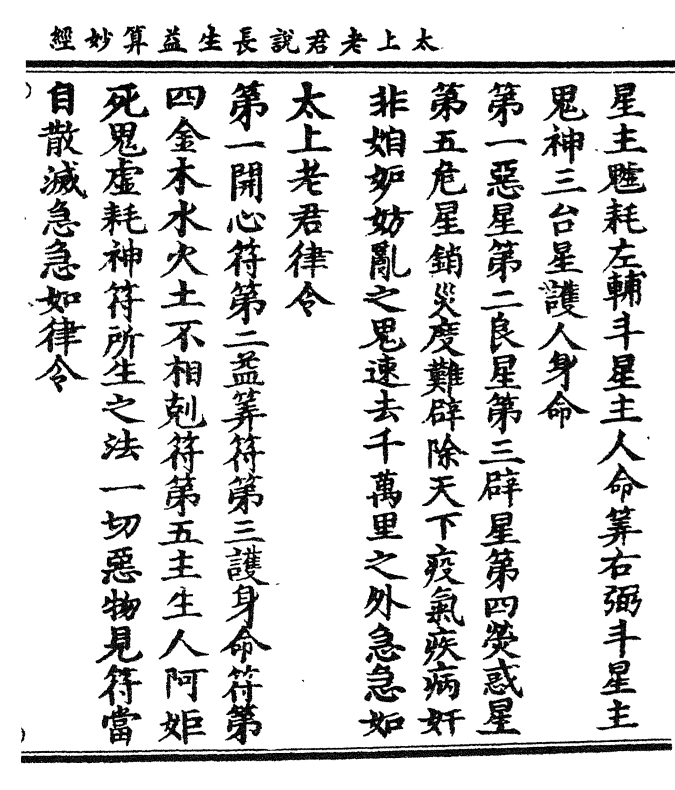 太上老君說長生益算妙經
星主魖耗左輔斗星主人命筭右弼斗星主
鬼神三台星護人身命
第一惡星第二良星第三辟星第四熒惑星
第五危星銷災度難辟除天下疫氣疾病奸
非妲妒妨亂之鬼速去千萬里之外急急如
太上老君律令
第一開心符第二益筭符第三護身命符第
四金木水火土不相剋符第五主生人阿姖
死鬼虛耗神符所生之法一切惡物見符當
自散滅急急如律令